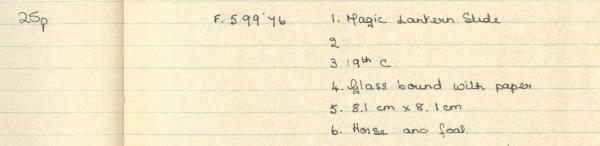 25p F.599'76 1. Magic Lantern Slide
2
3 19th C
4. Glass bound with paper
5. 8.1 cm x 8.1 cm
6. Horse and foal.